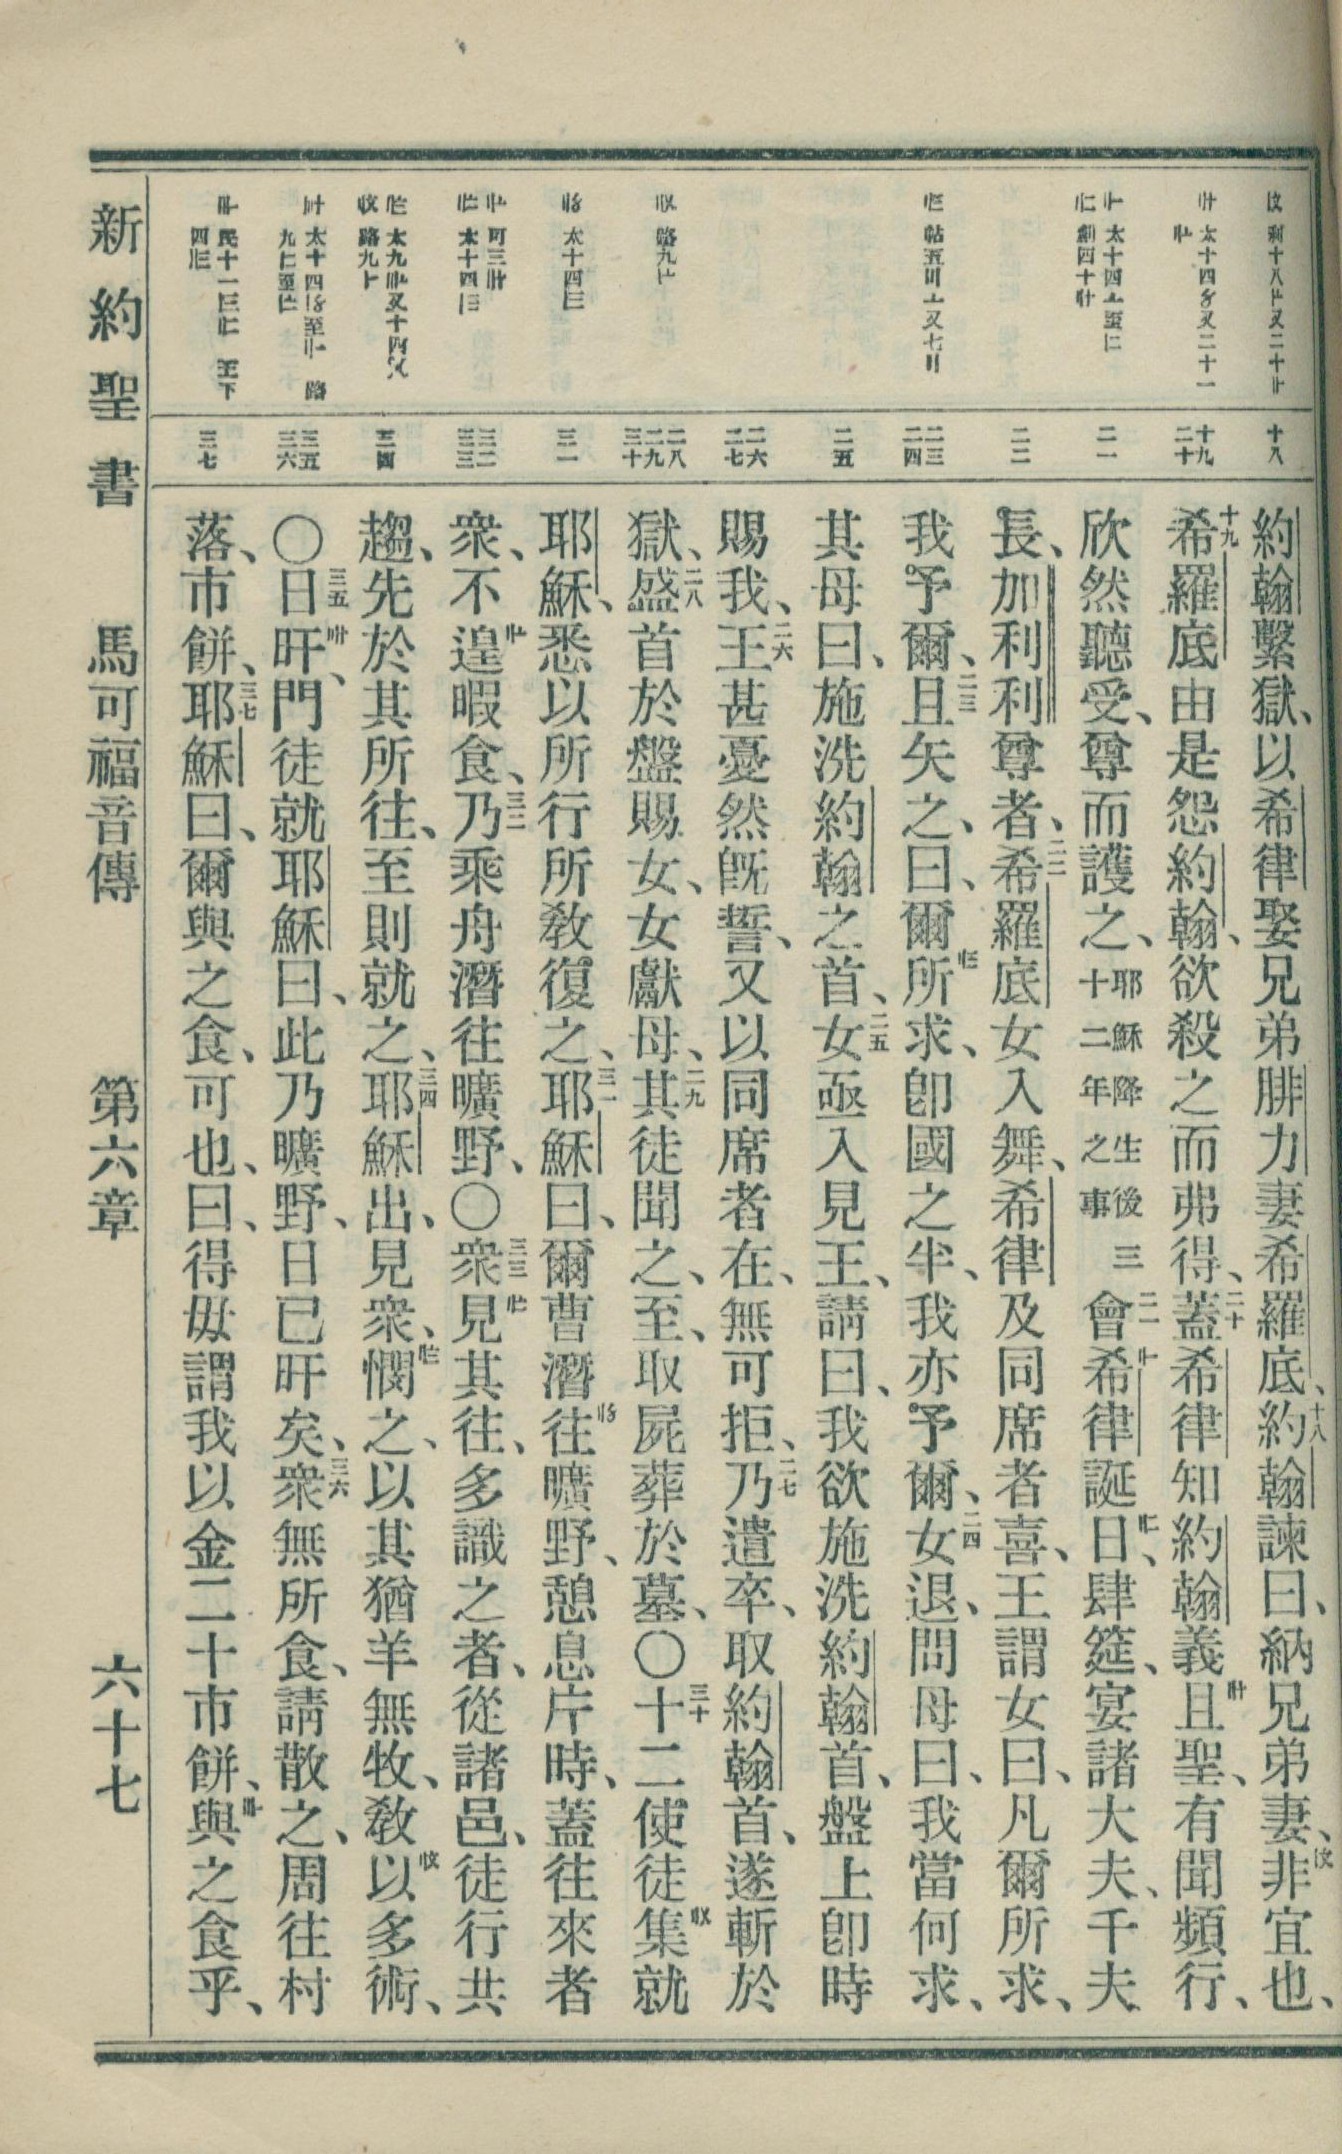 十八
十九
二十
二一
二二
二三
二四
二五
二六
二七
二八
二九
三十
三一
三二
三三
三四
三五
三六
三七
約翰繫獄、以希律娶兄弟腓力妻希羅底、十八約翰諫曰、納兄弟妻、非宜也、
十九希羅底由是怨約翰、欲殺之而弗得、二十蓋希律知約翰義且聖、有聞頻行、
欣然聽受、尊而護之、耶穌降生後三十二年之事二一會希律誕日、肆筵、宴諸大夫、千夫
長、加利利尊者、二二希羅底女入舞、希律及同席者喜、王謂女曰、凡爾所求、
我予爾、二三且矢之、曰、爾所求、卽國之半、我亦予爾、二四女退、問母曰、我當何求、
其母曰、施洗約翰之首、二五女亟入見王、請曰、我欲施洗約翰首、盤上卽時
賜我、二六王甚憂然旣誓、又以同席者在、無可拒、二七乃遣卒、取約翰首、遂斬於
獄、二八盛首於盤賜女、女獻母、二九其徒聞之、至、取屍葬於墓、〇三十十二使徒集就
耶穌、悉以所行所敎復之、三一耶穌曰、爾曹潛往曠野、憩息片時、蓋往來者
衆、不遑暇食、三二乃乘舟潛往曠野、〇三三衆見其往、多識之者、從諸邑、徒行共
趨、先於其所往、至則就之、三四耶穌出、見衆、憫之、以其猶羊無牧、敎以多術、
〇三五日旰、門徒就耶穌曰、此乃曠野、日已旰矣、三六衆無所食、請散之、周往村
落、市餅、三七耶穌曰、爾與之食、可也、曰、得毋謂我以金二十市餅、與之食乎、
新約聖書 馬可福音傳 第六章 六十七